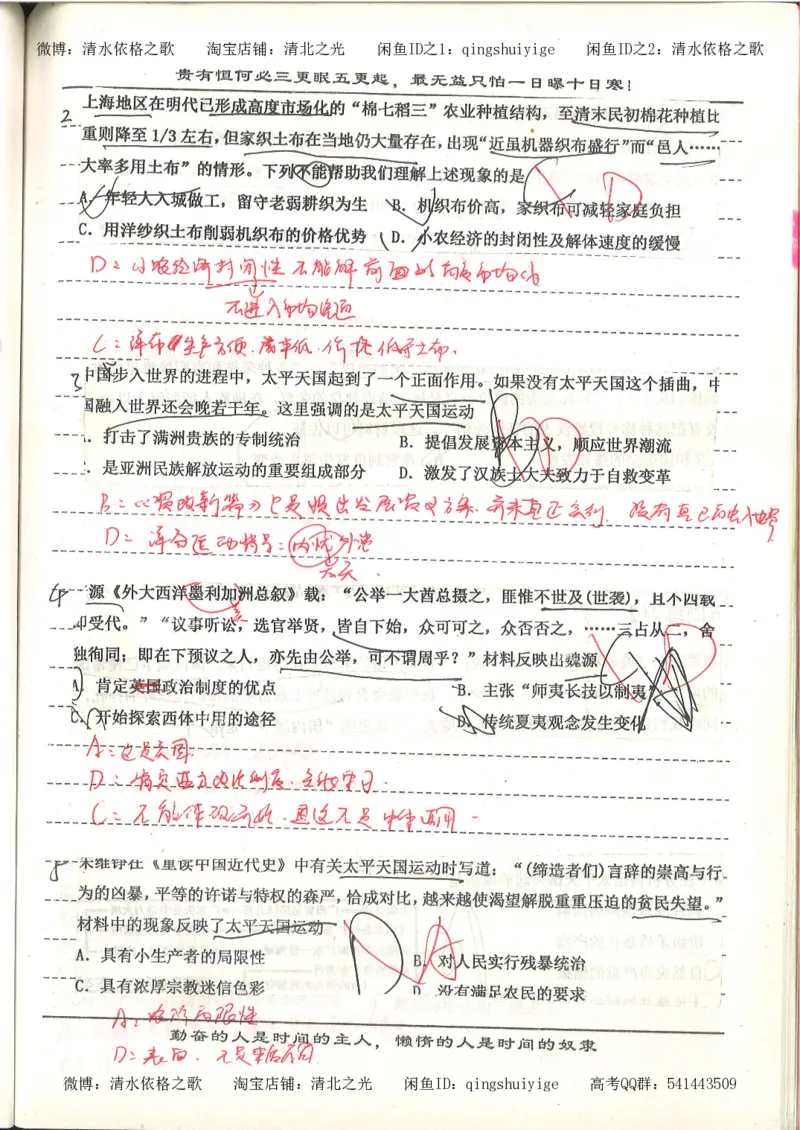 微博：清水依格之歌 淘宝店铺：清北之光 闲鱼ID之1：qingshuiyige 闲鱼ID之2：清水依格之歌
贵有恒何必三更眠五更起，最无益只怕一日曝十日寒！
2 上海地区在明代已形成高度市场化的“棉七稻三”农业种植结构，至清末民初棉花种植比
重则降至1/3左右，但家织土布在当地仍大量存在，出现“近虽机器织布盛行”而“邑人……
大率多用土布”的情形。下列不能帮助我们理解上述现象的是
A. 年轻人入城做工，留守老弱耕织为生 B. 机织布价高，家织布可减轻家庭负担
C. 用洋纱织土布削弱机织布的价格优势 D. 小农经济的封闭性及解体速度的缓慢
D：小农经济封闭性 不能解
不进入市场流通
C：洋布 生产方便，成本低，价格低于土布。
3 中国步入世界的进程中，太平天国起到了一个正面作用。如果没有太平天国这个插曲，中
国融入世界还会晚若干年。这里强调的是太平天国运动
. 打击了满洲贵族的专制统治 B. 提倡发展资本主义，顺应世界潮流
. 是亚洲民族解放运动的重要组成部分 D. 激发了汉族士大夫致力于自救变革
B：《资政新篇》只是提出发展资义方案，并未真正实行，没有真正融入世界
D：洋务运动背景：内忧外患
太天.
4 源《外大西洋墨利加洲总叙》载：“公举一大酋总摄之，匪惟不世及(世袭)，且不四载
即受代。”“议事听讼，选官举贤，皆自下始，众可可之，众否否之，……三占从二，舍
独徇同，即在下预议之人，亦先由公举，可不谓周乎？”材料反映出魏源
美
A. 肯定英国政治制度的优点 B. 主张“师夷长技以制夷”
C. 开始探索西体中用的途径 D. 传统夷夏观念发生变化
A：这是美国.
D：肯定西方政治制度，
C：不能体现
5 朱维铮在《重读中国近代史》中有关太平天国运动时写道：“(缔造者们)言辞的崇高与行
为的凶暴，平等的许诺与特权的森严，恰成对比，越来越使渴望解脱重重压迫的贫民失望。”
材料中的现象反映了太平天国运动
A. 具有小生产者的局限性 B. 对人民实行残暴统治
C. 具有浓厚宗教迷信色彩 D. 没有满足农民的要求
A：农阶局限性
勤奋的人是时间的主人，懒惰的人是时间的奴隶
D：表面，不是本质原因
微博：清水依格之歌 淘宝店铺：清北之光 闲鱼ID：qingshuiyige 高考QQ群：541443509